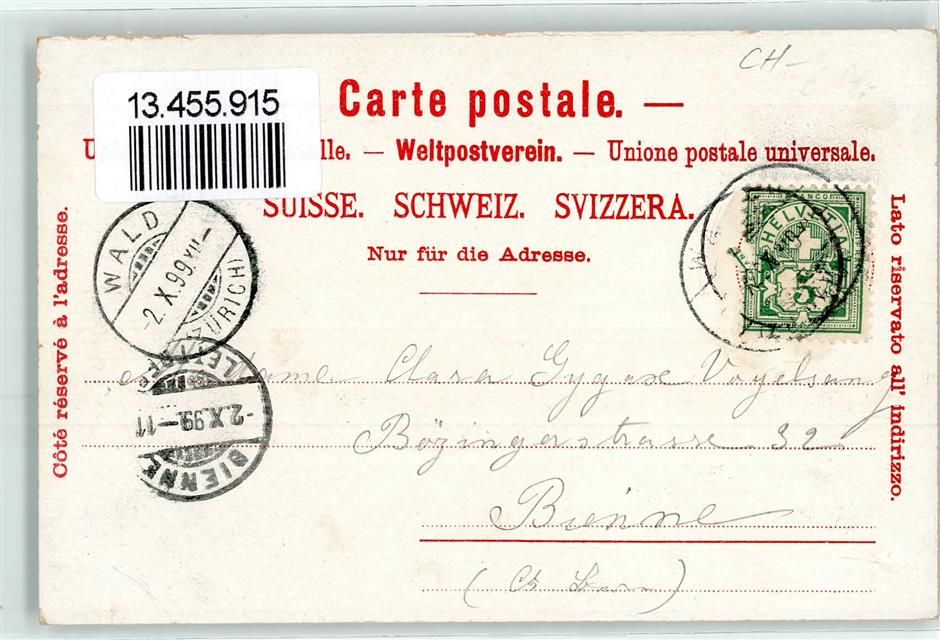 CH-
13.455.915
Carte postale. —
lle. — Weltpostverein. — Unione postale universale.
SUISSE. SCHWEIZ. SVIZZERA.
Nur für die Adresse.
Côté réservé à l'adresse.
Lato riservato all' indirizzo.
WALD
-2.X.99 XII-
(ZÜRICH)
FRANCO
HELVETIA
-2.X.99.-11
BIENNE
Clara Gygax Vogelsang
Bözingerstrasse 32
Bienne
(Ct. Bern)